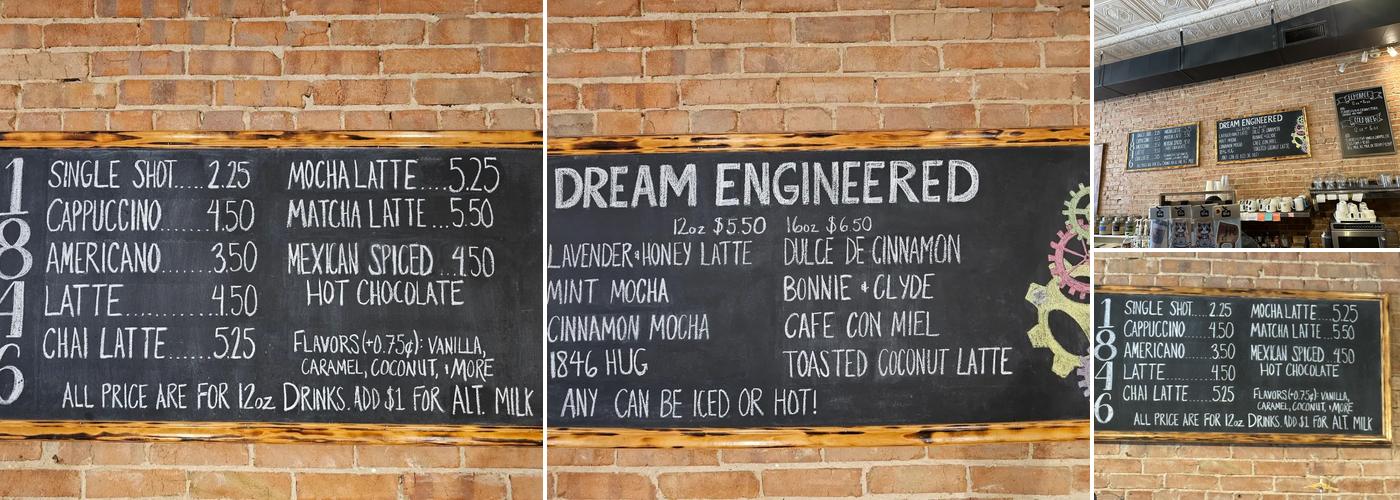 1846
SINGLE SHOT.....2.25
CAPPUCCINO 4.50
AMERICANO.......3.50
LATTE............4.50
CHAI LATTE.....5.25
MOCHA LATTE....5.25
MATCHA LATTE...5.50
MEXICAN SPICED..4.50
HOT CHOCOLATE
FLAVORS(+0.75¢): VANILLA,
CARAMEL, COCONUT, & MORE
ALL PRICE ARE FOR 12oz DRINKS. ADD $1 FOR ALT. MILK
DREAM ENGINEERED
12oz $5.50 16oz $6.50
LAVENDER & HONEY LATTE
MINT MOCHA
CINNAMON MOCHA
1846 HUG
DULCE DE CINNAMON
BONNIE & CLYDE
CAFE CON MIEL
TOASTED COCONUT LATTE
ANY CAN BE ICED OR HOT!
DREAM ENGINEERED
1846
SINGLE SHOT....2.25
CAPPUCCINO 4.50
AMERICANO.......3.50
LATTE............4.50
CHAI LATTE.....5.25
MOCHA LATTE....5.25
MATCHA LATTE...5.50
MEXICAN SPICED..4.50
HOT CHOCOLATE
FLAVORS(+0.75¢): VANILLA,
CARAMEL, COCONUT, & MORE
ALL PRICE ARE FOR 12oz DRINKS. ADD $1 FOR ALT. MILK